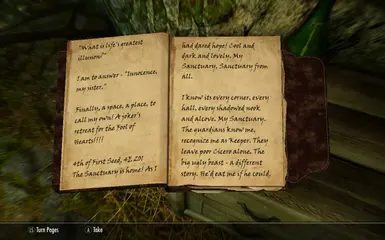 "What is life's greatest
illusion?"
I am to answer - "Innocence,
my sister."
Finally, a space, a place, to
call my own! A joker's
retreat for the Fool of
Hearts!!!!
4th of First Seed, 4E 201
The Sanctuary is home! As I
had dared hope! Cool and
dark and lovely. My
Sanctuary, Sanctuary from
all.
I know its every corner, every
hall, every shadowed nook
and alcove. My Sanctuary.
The guardians know me,
recognize me as Keeper. They
leave poor Cicero alone. The
big ugly beast - a different
story. He'd eat me if he could,
LS Turn Pages
A Take